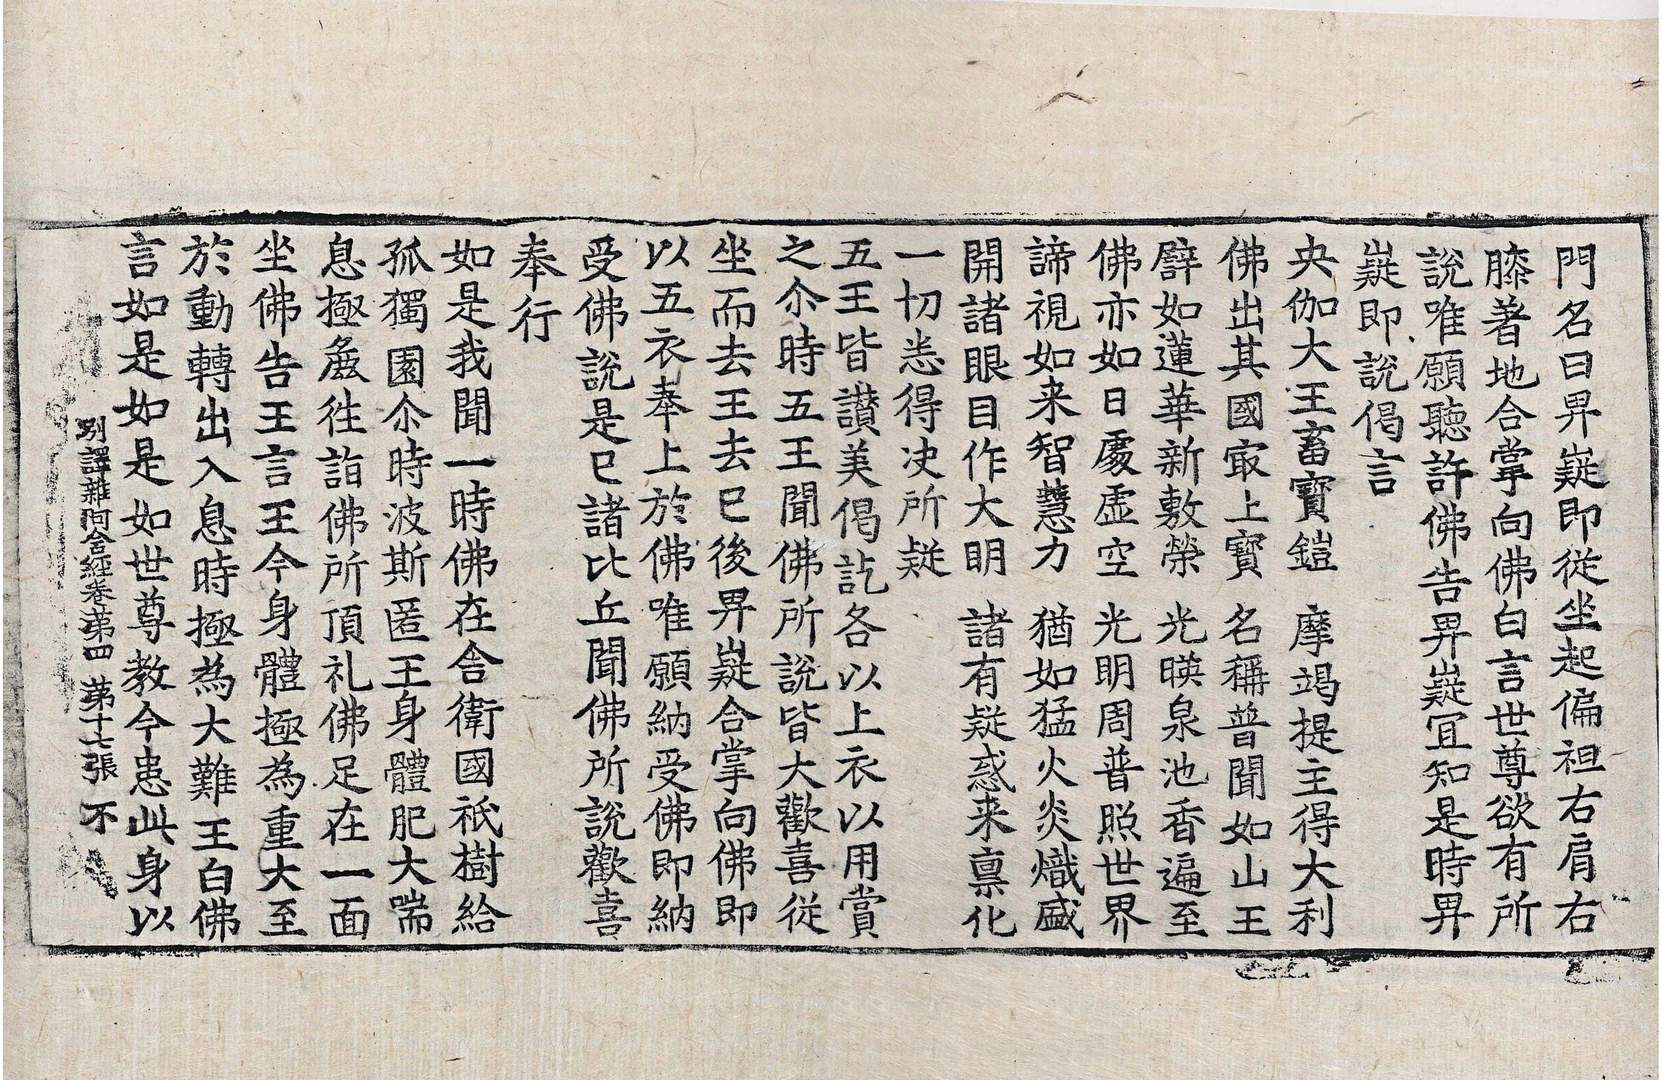 門名曰昇嶷即從坐起偏袒右肩右
膝著地合掌向佛白言世尊欲有所
說唯願聽許佛告昇嶷宜知是時昇
嶷即說偈言
央伽大王畜寳鎧　摩竭提主得大利
佛出其國㝡上寳　名稱普聞如山王
辟如蓮華新敷榮　光暎泉池香遍至
佛亦如日處虛空　光明周普照世界
諦視如来智慧力　猶如猛火炎熾盛
開諸眼目作大明　諸有疑惑来禀化
一切悉得决所疑
五王皆讃美偈訖各以上衣以用賞
之尒時五王聞佛所說皆大歡喜從
坐而去王去已後昇嶷合掌向佛即
以五衣奉上於佛唯願納受佛即納
受佛說是已諸比丘聞佛所說歡喜
奉行
如是我聞一時佛在舍衛國祇樹給
孤獨園尒時波斯匿王身體肥大喘
息極麁徃詣佛所頂礼佛足在一面
坐佛告王言王今身體極為重大至
於動轉出入息時極為大難王白佛
言如是如是如世尊教今患此身以
別譯雜阿含經卷苐四　苐十七張　不